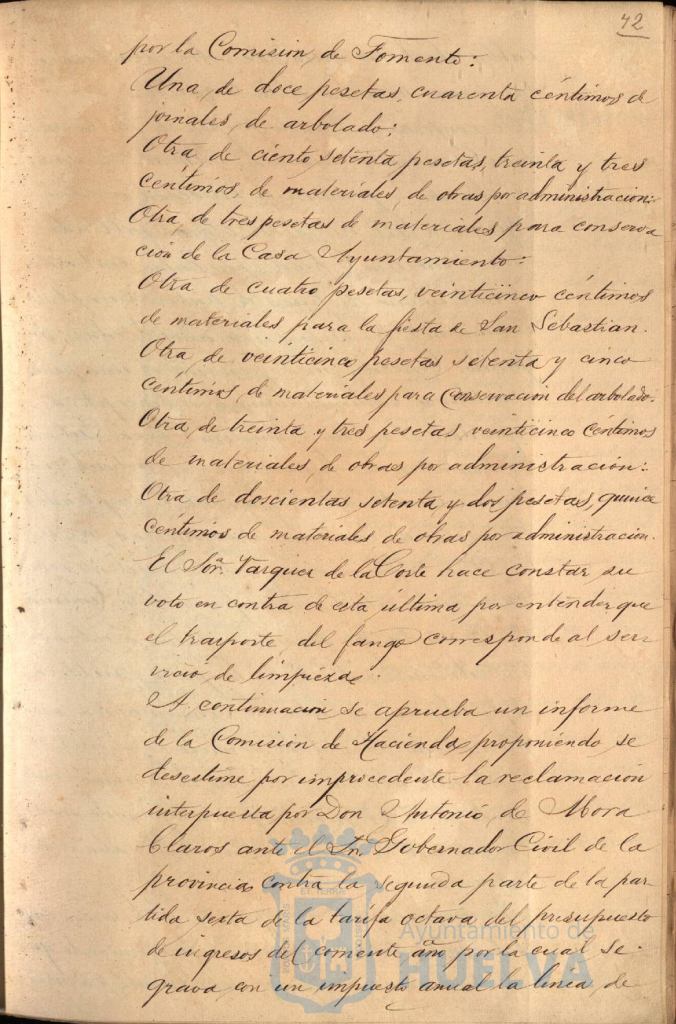 42
por la Comision, de Fomento:
Una, de doce pesetas, cuarenta céntimos de
jornales, de arbolado;
Otra, de ciento, setenta pesetas, treinta y tres
céntimos, de materiales, de obras por administracion:
Otra, de tres pesetas de materiales para conserva
ción de la Casa Ayuntamiento:
Otra de cuatro pesetas, veinticinco céntimos
de materiales para la fiesta de San Sebastian.
Otra de veinticinco pesetas, setenta y cinco
céntimos, de materiales para conservacion del arbolado.
Otra, de treinta y tres pesetas, veinticinco céntimos
de materiales, de obras por administración:
Otra de doscientas setenta y dos pesetas, quince
céntimos de materiales de obras por administración.
El Sor. Vazquez de la Corte hace constar, su
voto en contra de esta última por entender que
el trasporte del fango corresponde al ser-
vicio de limpieza.
A continuacion, se aprueba un informe
de la Comision de Hacienda, proponiendo se
desestime por improcedente la reclamación
interpuesta por Don Antonio, de Mora
Claros ante el Sr. Gobernador Civil de la
provincia contra la segunda parte de la par-
tida sexta de la tarifa octava del presupuesto
de ingresos del corriente año por la cual se
grava con un impuesto anual la linea, de
Ayuntamiento de
HUELVA